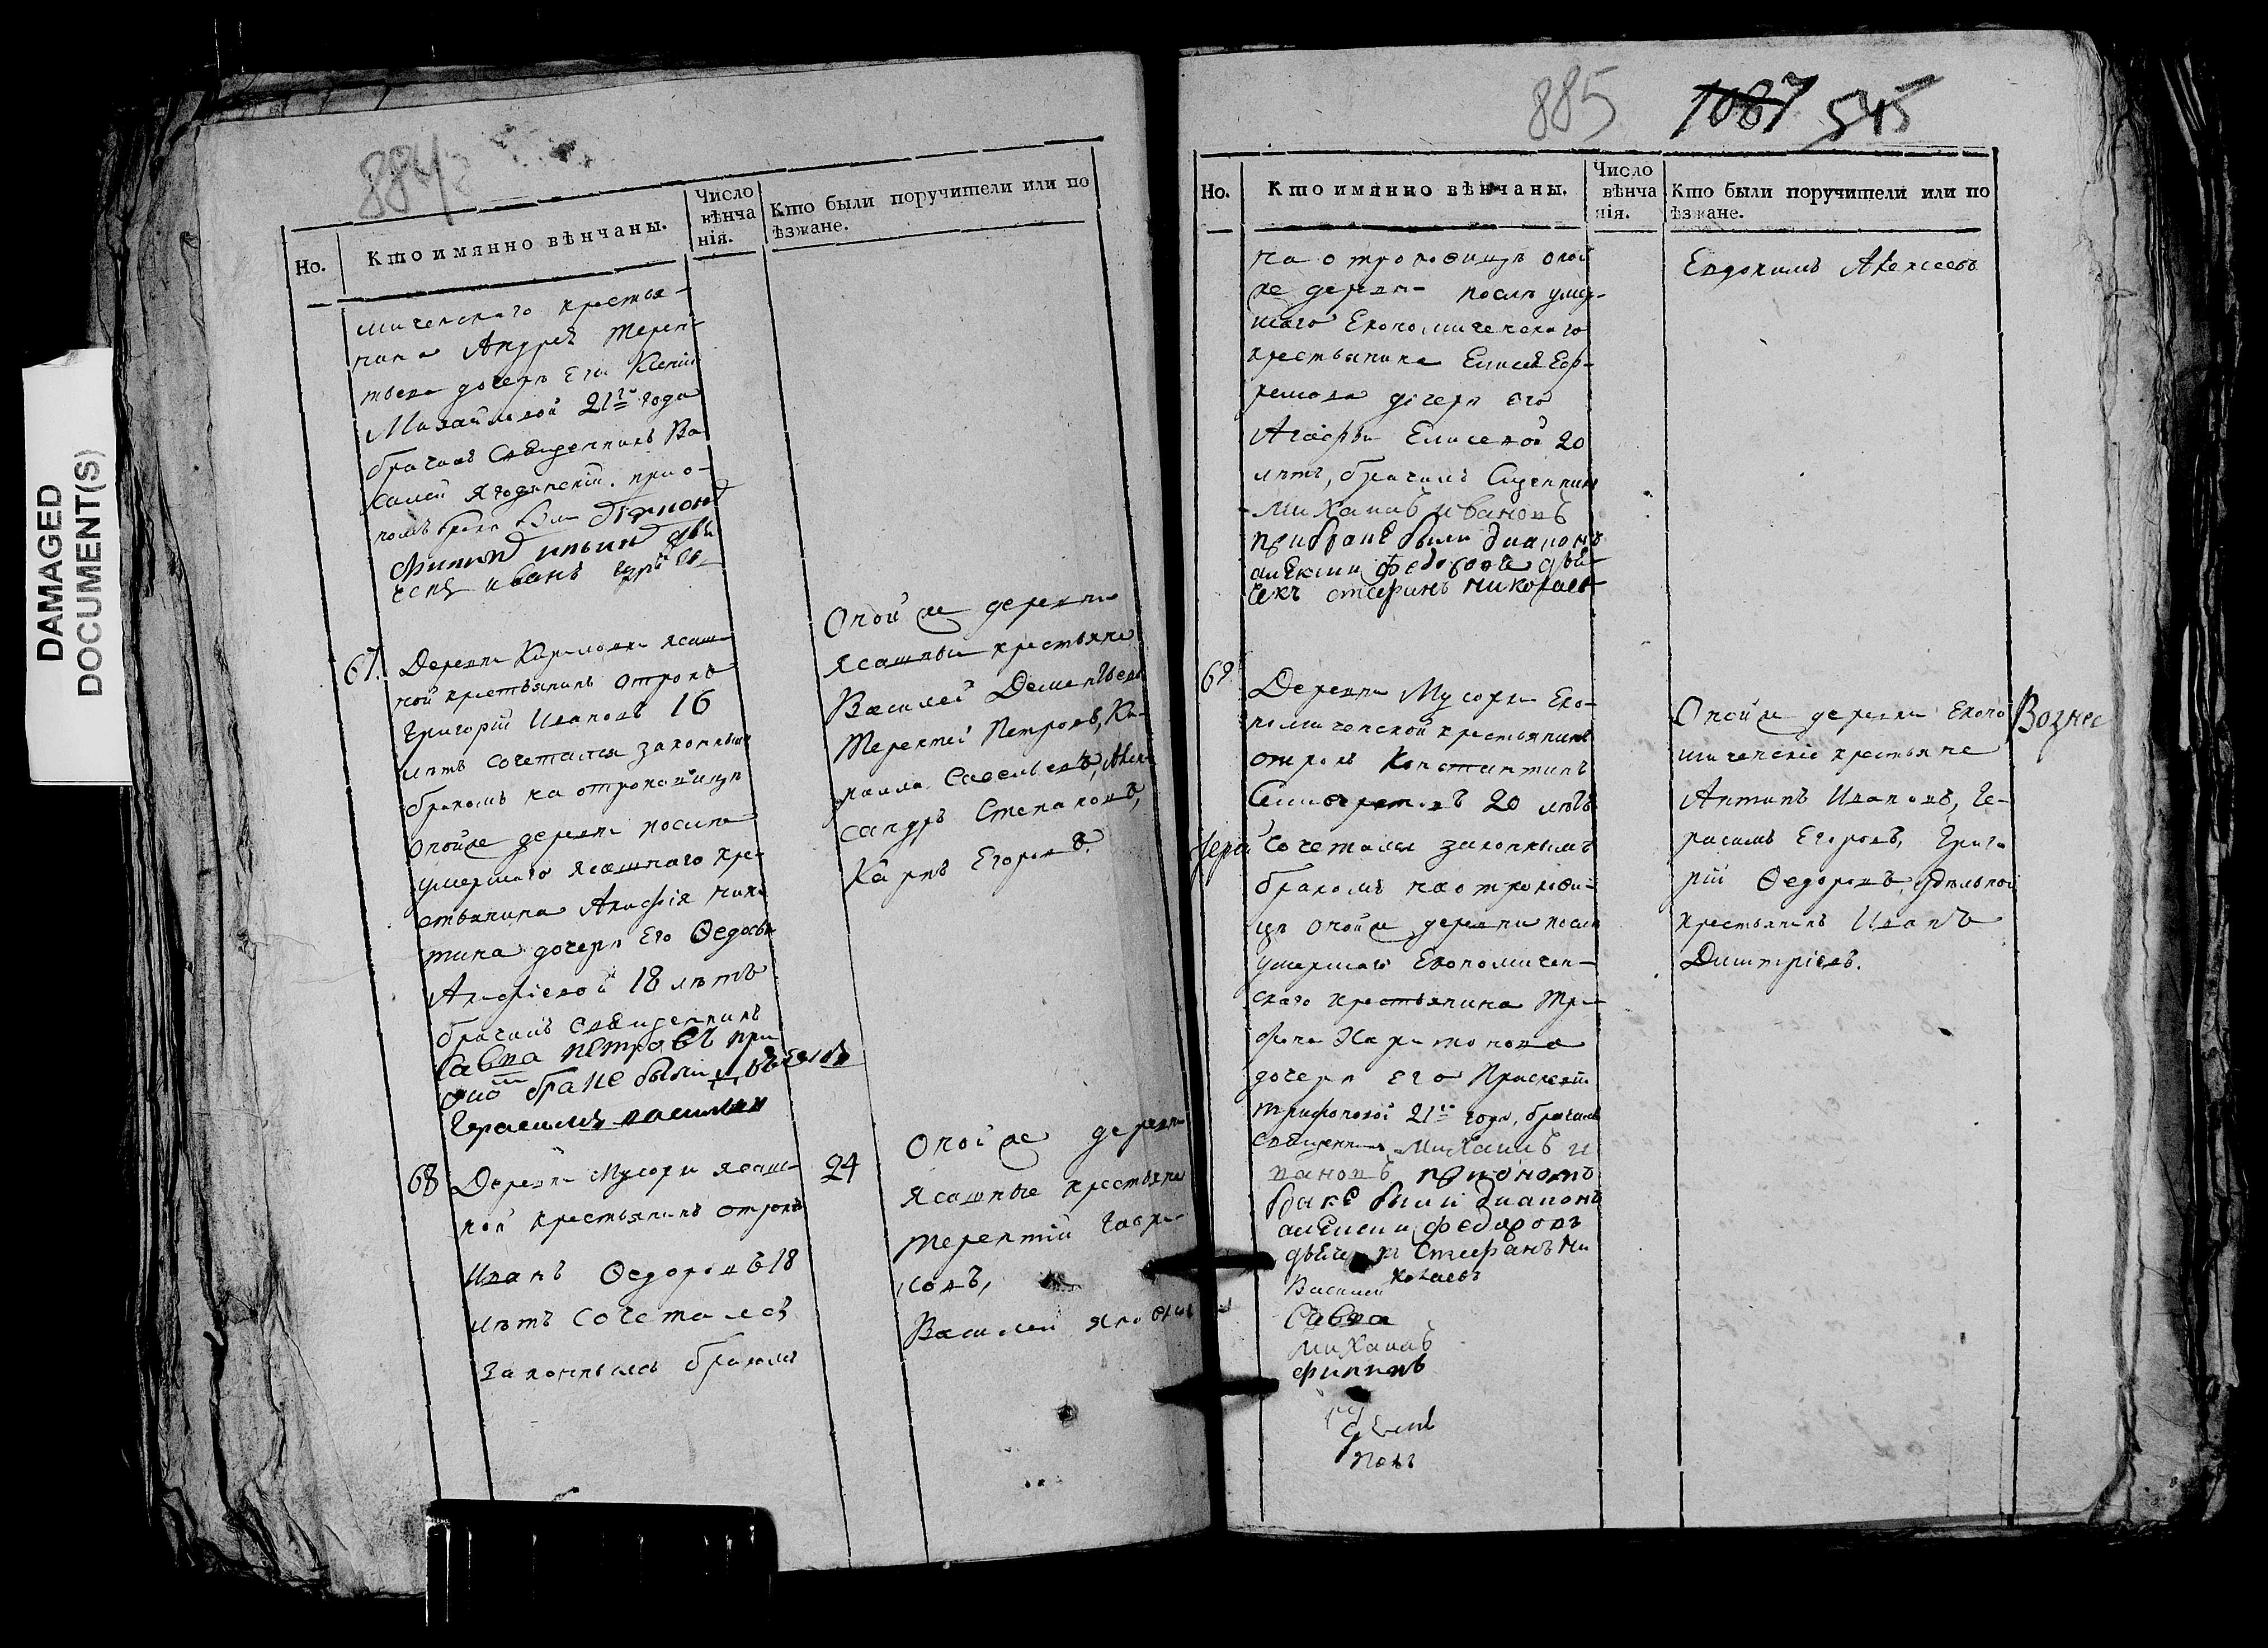 DAMAGED
DOCUMENT(S)
884
Но.
Кто имянно вѣнчаны.
Число
вѣнча
нія.
Кто были поручители или по
ѣзжане.
мическаго крестья-
нина Андрея Терен-
тьева дочери Его Ксении
Михайловой 21го года
брачил Священникъ Ва
силей при о-
ном браке были дiакон
Филипъ ильин
иванъ
67.
Деревни ясаш-
ной крестьянинъ отрокъ
Григорiй Ивановъ 16
лѣтъ сочетался законнымъ
бракомъ на отроковицѣ
оной же деревни послѣ
умершаго ясашнаго кре-
стьянина Ники
тина дочери Его Ѳедосьи
18 лѣтъ
брачилъ священникъ
Савва петровъ при
браке были
Герасимъ васильев
Оной же деревни
ясашные крестьяне
Василей Дементьевъ
Терентей Петровъ, Ки-
рилла Савельевъ, Алек
сандръ Степановъ,
Карпъ Егоровъ.
68
Деревни Мусорки ясаш-
ной крестьянинъ отрокъ
Иванъ Ѳедоровъ 18
лѣтъ сочетался
законнымъ бракомъ
24
Оной же деревни
ясашные крестьяне
Терентiй Гаври-
ловъ,
Василей
885 1087 545
Но.
Кто имянно вѣнчаны.
Число
вѣнча
нія.
Кто были поручители или по
ѣзжане.
на отроковицѣ оной
же деревни послѣ умер-
шаго Економическаго
крестьянина Елисея Еф-
ремова дочери его
Агафьи Елисевой 20
лѣтъ, брачилъ Сщенникъ
Михаилъ ивановъ
при браке были диаконъ
алексии федоровъ дьи-
чекъ стефанъ николаев
Евдокимъ Алексеевъ
69
Деревни Мусорки Еко-
номической крестьянинъ
отрокъ Константинъ
20 лѣтъ
сочетался законнымъ
бракомъ на отрокови-
цѣ оной же деревни послѣ
умершаго Економичес-
скаго крестьянина Три-
фона Харитонова
дочери его Прасковьи
Трифоновой 21го года, брачилъ
священникъ Михаилъ и
вановъ при ономъ
браке были диаконъ
алексии федоровъ
дьячекъ Стефанъ ни
колаевъ
Оной же деревни Еконо
мическiе крестьяне
Антипъ Ивановъ, Ге-
расимъ Егоровъ, Григо
рiй Ѳедоровъ, удѣльной
крестьянинъ Иванъ
Димитрiевъ.
Вознес
Василей
Савва
михаилъ
филипъ